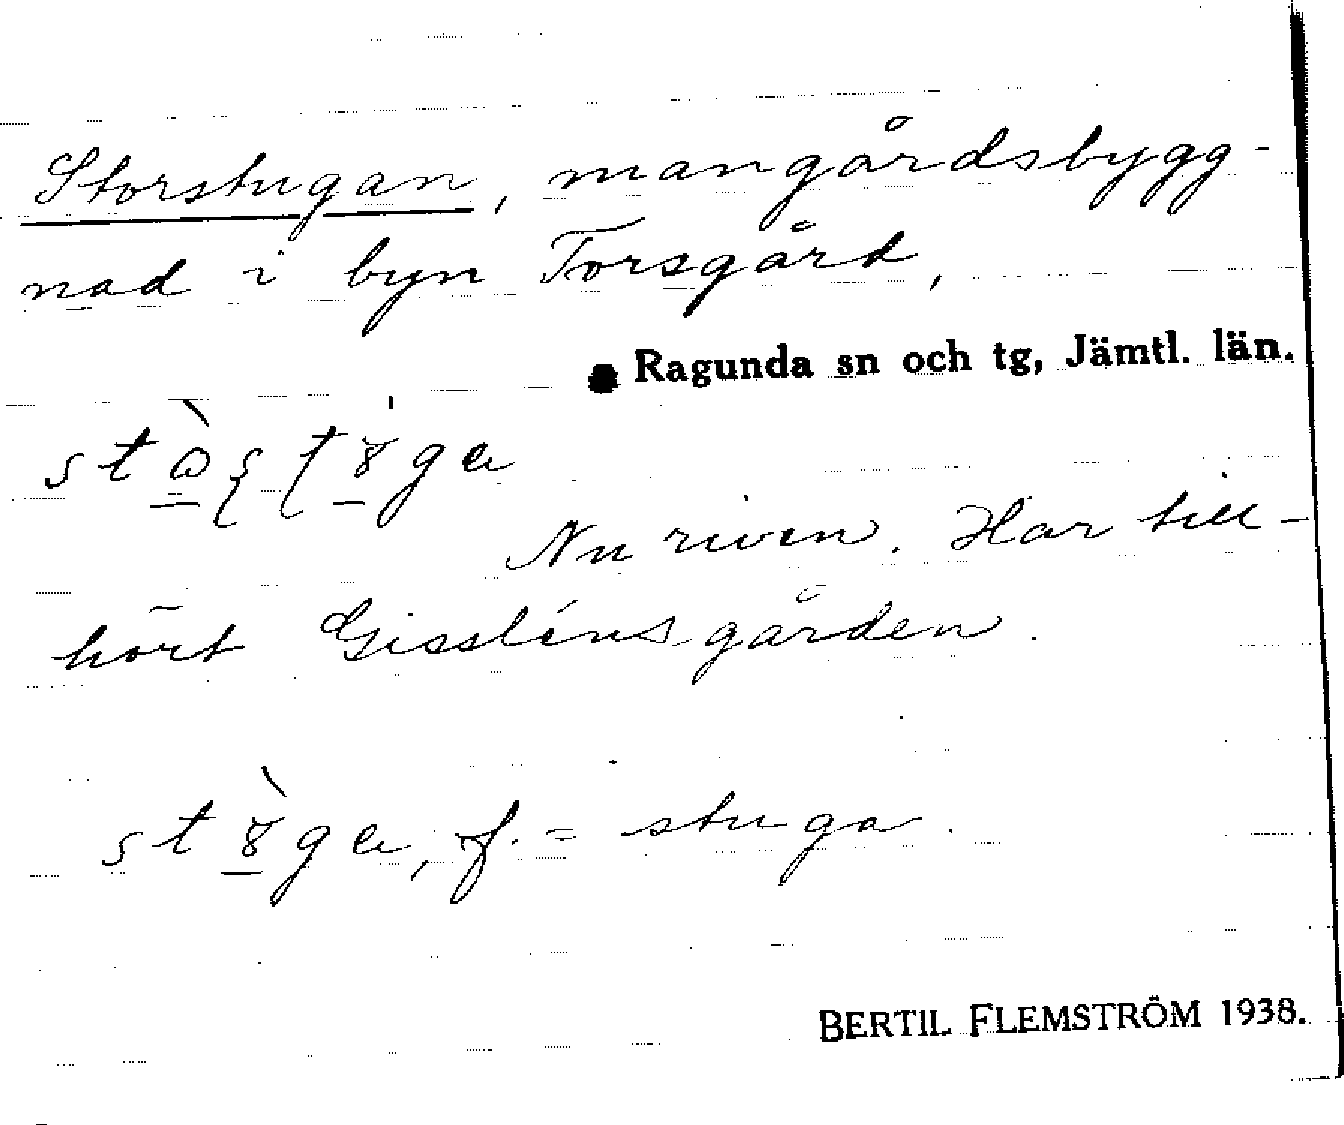 Storstugan, mangårdsbygg-
nad i byn Torsgård,
Ragunda sn och tg, Jämtl. län.
Nu riven. Har till-
hört Gissléns gården.
f. = stuga.
BERTIL FLEMSTRÖM 1938.